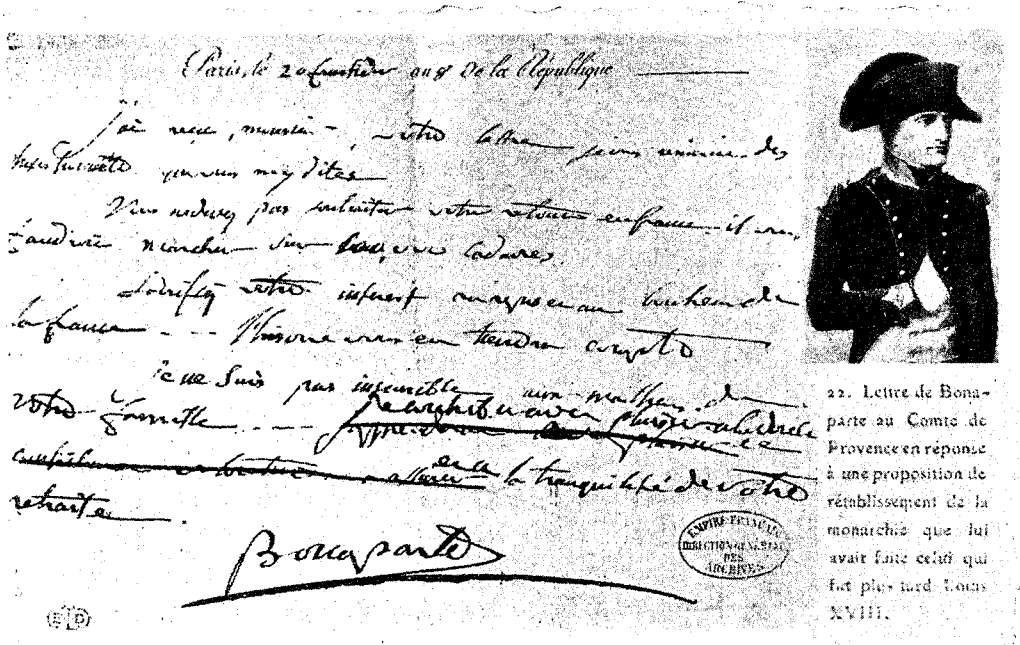 Paris, le 20 fructidor an 8 De la République
j'ai reçu, monsieur votre lettre je vous remercie des
honnête que vous m'y dites
Vous ne devez pas souhaiter votre retour en france il vous
faudrait marcher sur cadavres
Sacrifiez votre interest au repos et au bonheur de
la france --- l'histoire vous en tiendra compte
je ne suis pas insensible aux malheurs de
votre famille ---- je contribuerai avec plaisir à
et a la tranquilité de votre
retraite.
Bonaparte
EMPIRE FRANÇAIS
DIRECTION GENERAL
DES
ARCHIVES
22. Lettre de Bona-
parte au Comte de
Provence en réponse
à une proposition de
rétablissement de la
monarchie que lui
avait faite celui qui
fut plus tard Louis
XVIII.